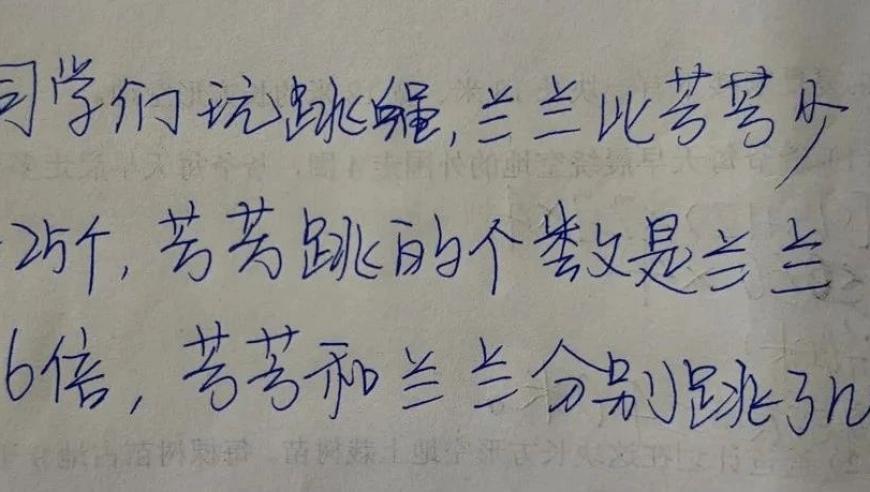 同学们玩跳绳,兰兰比芳芳少
25个,芳芳跳的个数是兰兰
6倍,芳芳和兰兰分别跳了几